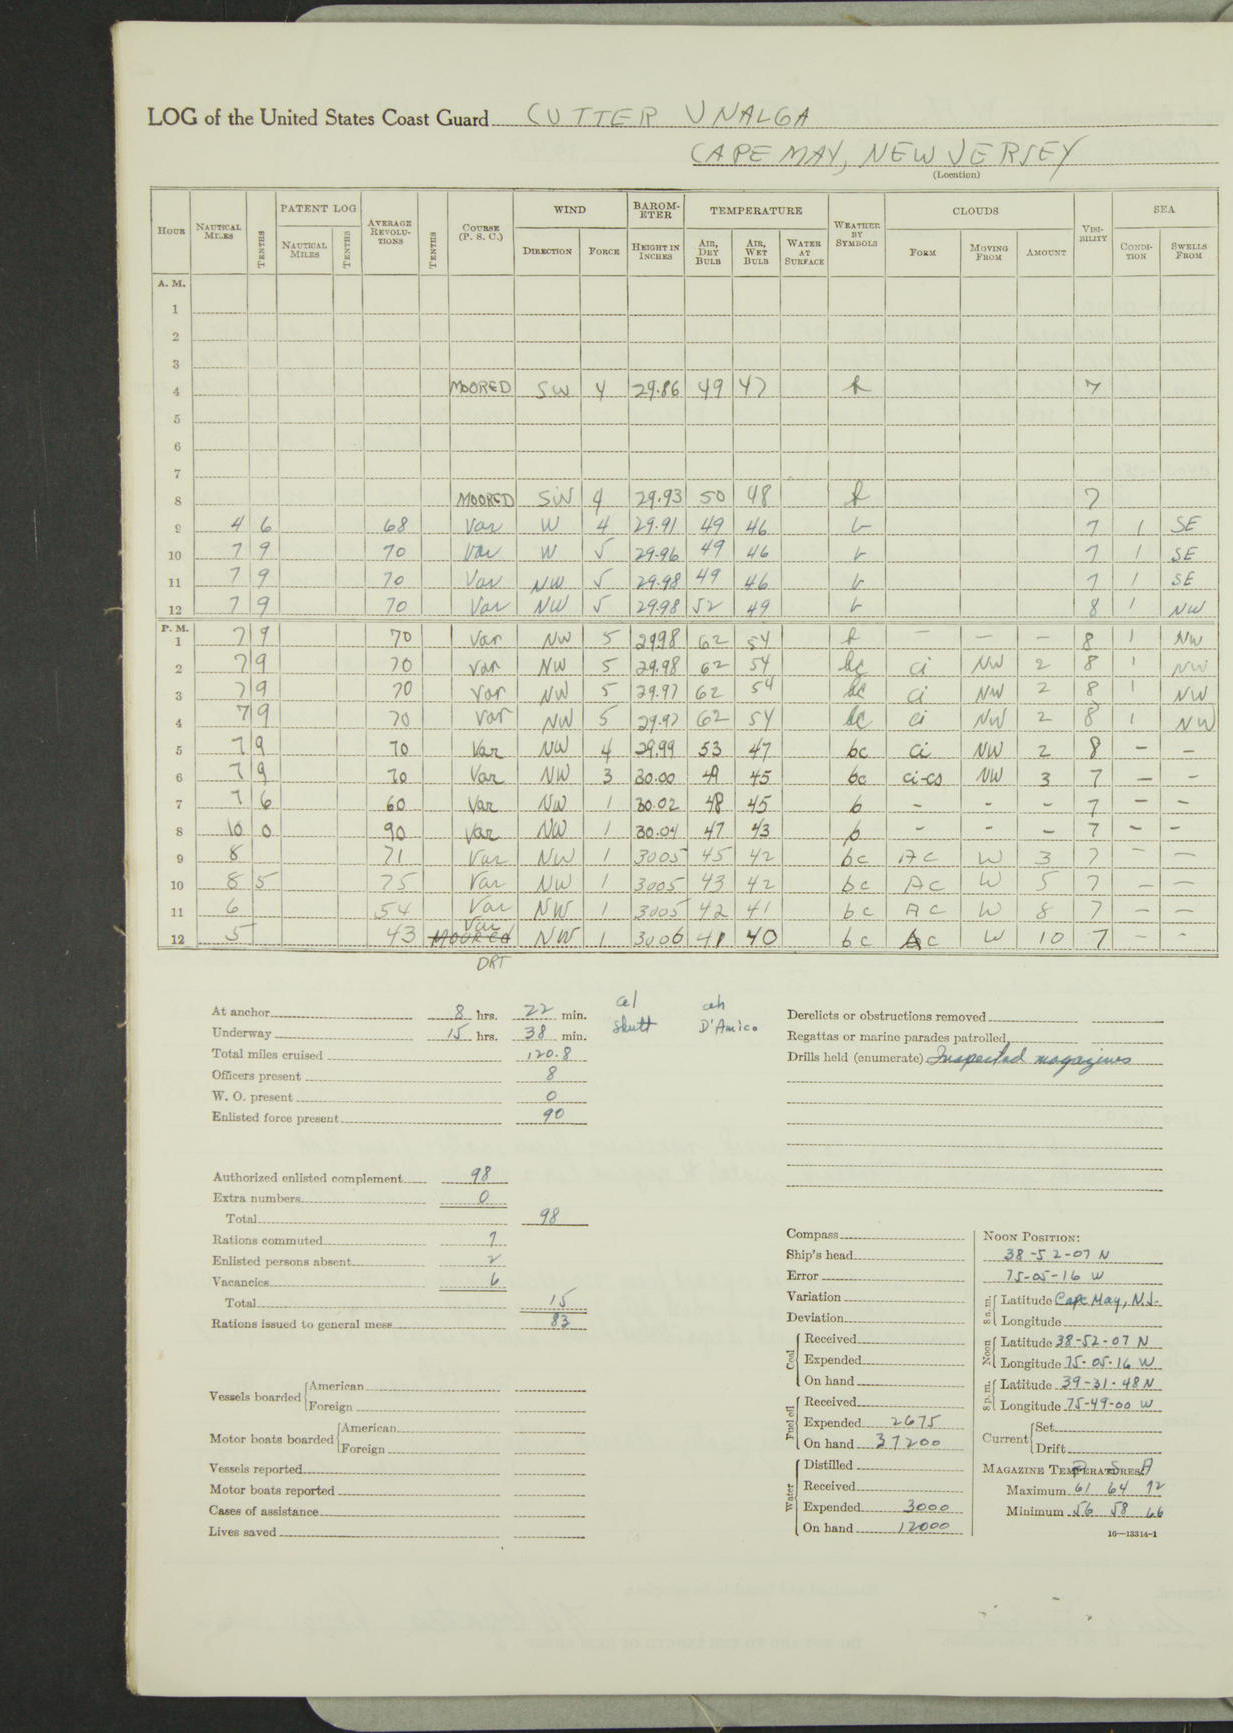 LOG of the United States Coast Guard CUTTER UNALGA
CAPE MAY, NEW JERSEY
(Location)
HOUR NAUTICAL MILES TENTHS PATENT LOG NAUTICAL MILES TENTHS AVERAGE REVOLUTIONS TENTHS COURSE (P. S. C.) WIND DIRECTION FORCE BAROMETER HEIGHT IN INCHES TEMPERATURE AIR, DRY BULB AIR, WET BULB WATER AT SURFACE WEATHER BY SYMBOLS CLOUDS FORM MOVING FROM AMOUNT VISIBILITY SEA CONDITION SWELLS FROM
A. M.
1
2
3
4 MOORED SW 4 29.86 49 47 7
5
6
7
8 MOORED SW 4 29.93 50 48 7
9 4 6 68 Var W 4 29.91 49 46 b 7 1 SE
10 7 9 70 Var W 5 29.96 49 46 b 7 1 SE
11 7 9 70 Var NW 5 29.98 49 46 b 7 1 SE
12 7 9 70 Var NW 5 29.98 52 49 b 8 1 NW
P. M.
1 7 9 70 Var NW 5 29.98 62 54 b — — — 8 1 NW
2 7 9 70 Var NW 5 29.98 62 54 bc Ci NW 2 8 1 NW
3 7 9 70 Var NW 5 29.97 62 54 bc Ci NW 2 8 1 NW
4 7 9 70 Var NW 5 29.97 62 54 bc Ci NW 2 8 1 NW
5 7 9 70 Var NW 4 29.99 53 47 bc Ci NW 2 8 — —
6 7 9 70 Var NW 3 30.00 49 45 bc Ci-cs NW 3 7 — —
7 7 6 60 Var NW 1 30.02 48 45 b - - - 7 — —
8 10 0 90 Var NW 1 30.04 47 43 b - - - 7 — —
9 8 71 Var NW 1 3005 45 42 bc AC W 3 7 — —
10 8 5 75 Var NW 1 3005 43 42 bc AC W 5 7 — —
11 6 54 Var NW 1 3005 42 41 bc AC W 8 7 — —
12 5 43 MOORED Var NW 1 3006 41 40 bc Ac W 10 7 — —
DRT
At anchor 8 hrs. 22 min.
Underway 15 hrs. 38 min. Skutt D'Amico
Total miles cruised 120.8
Officers present 8
W. O. present 0
Enlisted force present 90
Authorized enlisted complement 98
Extra numbers 0
Total 98
Rations commuted 7
Enlisted persons absent 2
Vacancies 6
Total 15
Rations issued to general mess 83
Vessels boarded American
Foreign
Motor boats boarded American
Foreign
Vessels reported
Motor boats reported
Cases of assistance
Lives saved
Derelicts or obstructions removed
Regattas or marine parades patrolled
Drills held (enumerate) Inspected magazines
Compass
Ship's head
Error
Variation
Deviation
Coal Received
Expended
On hand
Fuel oil Received
Expended 2675
On hand 37200
Water Distilled
Received
Expended 3000
On hand 12000
NOON POSITION:
38-52-07 N
75-05-16 W
8 a. m. Latitude Cape May, N.J.
Longitude
Noon Latitude 38-52-07 N
Longitude 75-05-16 W
8 p. m. Latitude 39-31-48 N
Longitude 75-49-00 W
Current Set
Drift
MAGAZINE TEMPERATURES:
Maximum 61 64 72
Minimum 56 58 66
16—13314-1